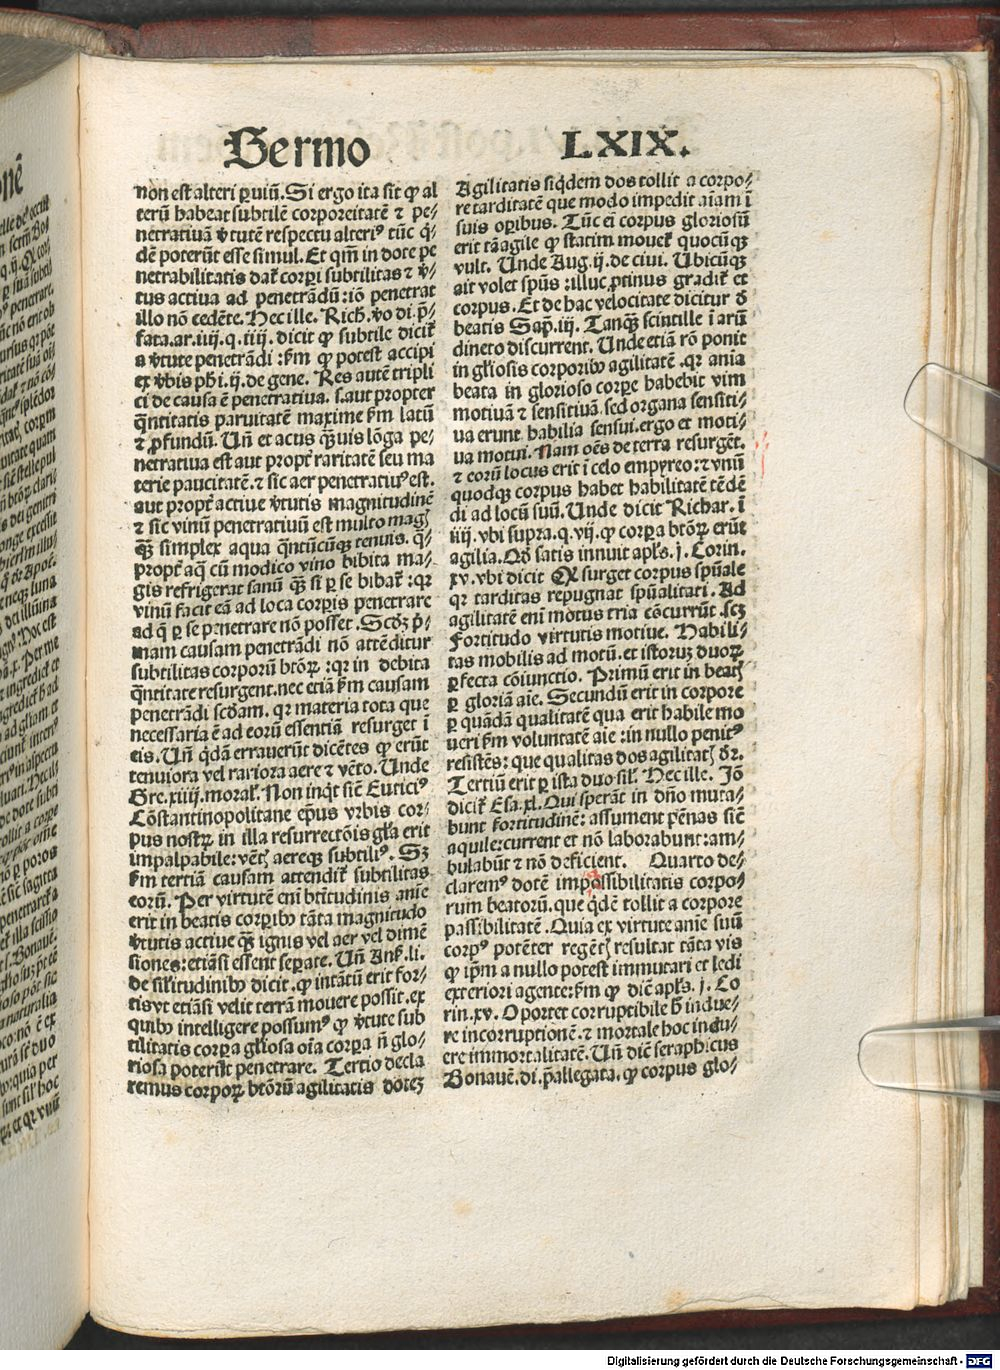 Sermo LXIX.
non est alteri ꝑuiū. Si ergo ita sit ꝙ al
terū habeat subtilē corporeitatē ⁊ pe⸗
netratiuā v̓tutē respectu alteriꝰ tūc q̄⸗
dē poterūt esse simul. Et qm̄ in dote pe
netrabilitatis dat᷑ corpi subtilitas ⁊ v̓
tus actiua ad penetrādū: iō penetrat
illo nō cedēte. Hec ille. Rich. v̓o di. p̄⸗
fata. ar. iiij. q. iiij. dicit ꝙ subtile dicit᷑
a v̓tute penetrādi: ẜm ꝙ potest accipi
ex v̓bis ph̄i. ij. de gene. Res autē tripli
ci de causa ē penetratiua. s. aut propter
q̄ntitatis paruitatē maxime ẜm latū
⁊ ꝓfundū. Uñ et acus q̄uis lōga pe⸗
netratiua est aut propt̓ raritatē seu ma
terie paucitatē. ⁊ sic aer penetratiuꝰ est.
aut propt̓ actiue v̓tutis magnitudinē
⁊ sic vinū penetratiuū est multo magꝭ
q̄ꝫ simplex aqua q̄ntūcūqꝫ tenuis. q̄⸗
propt̓ aq̄ cū modico vino bibita ma⸗
gis refrigerat sanū q̄ꝫ si ꝑ se bibat᷑: qꝛ
vinū facit eā ad loca corpis penetrare
ad q̄ ꝑ se penetrare nō posset. Scdꝫ p̄⸗
mam causam penetrādi nō attēditur
subtilitas corporū btōꝝ: qꝛ in debita
q̄ntitate resurgent. nec etiā ẜm causam
penetrādi scdam. qꝛ materia tota que
necessaria ē ad eorū essentiā resurget ī
eis. Uñ q̄dā errauerūt dicētes ꝙ erūt
tenuiora vel rariora aere ⁊ vēto. Unde
Gre. xiiij. moral̓. Non inq̄t sic̄ Euticiꝰ
Cōstantinopolitane ep̄us vrbis cor⸗
pus nostꝝ in illa resurrectōis gl̄a erit
impalpabile: vētꝭ aereqꝫ subtiliꝰ. Sꝫ
ẜm tertiā causam attendit᷑ subtilitas
eorū. Per virtutē eni btītudinis anie
erit in beatis corpibꝰ tāta magnitudo
v̓tutis actiue q̄ꝫ ignis vel aer vel dimē
siones: etiāsi essent seꝑate. Uñ Anẜ. li.
de silitudinibꝰ dicit. ꝙ intātū erit for⸗
tis vt etiāsi velit terrā mouere possit. ex
quibꝰ intelligere possumꝰ ꝙ v̓tute sub
tilitatis corpa gl̄iosa oīa corpa ñ glo⸗
riosa poterūt penetrare. Tertio decla
remus corpoꝝ btōrū agilitatis dotez
Agilitatis siq̄dem dos tollit a corpo⸗
re tarditatē que modo impedit aīam ī
suis opibus. Tūc ei corpus gloriosū
erit tā agile ꝙ statim mouet᷑ quocūqꝫ
vult. Unde Aug. ij. de ciui. Ubicūqꝫ
ait volet spūs: illuc ꝓtinus gradiet᷑ et
corpus. Et de hac velocitate dicitur d̓
beatis Sap. iij. Tanqꝫ scintille ī arū
dineto discurrent. Unde etiā rō ponit
in gl̄iosis corporibꝰ agilitatē. qꝛ ania
beata in glorioso corpe habebit vim
motiuā ⁊ sensitiuā. sed organa sensiti⸗
ua erunt habilia sensui. ergo et moti⸗
ua motui. Nam oēs de terra resurgēt.
⁊ eorū locus erit ī celo empyreo: ⁊ vnū
quodqꝫ corpus habet habilitatē tēdē
di ad locū suū. Unde dicit Richar. ī
iiij. vbi supra. q. vij. ꝙ corpa btōꝝ erūt
agilia. Qd̓ satis innuit apl̄s. j. Corin.
xv. vbi dicit Qꝛ surget corpus spūale
qꝛ tarditas repugnat spūalitati. Ad
agilitatē eni motus tria cōcurrūt. scꝫ
Fortitudo virtutis motiue. Habili⸗
tas mobilis ad motū. et istoruꝫ duoꝝ
ꝑfecta cōiunctio. Primū erit in beatꝭ
ꝑ gloriā aīe. Secundū erit in corpore
ꝑ quādā qualitatē qua erit habile mo
ueri ẜm voluntatē aīe: in nullo penitꝰ
resistēs: que qualitas dos agilitatꝭ dr̄.
Tertiū erit ꝑ ista duo sil̓. Hec ille. Iō
dicit᷑ Esa. xl. Qui sperāt in dño muta⸗
bunt fortitudinē: assument pēnas sic̄
aquile: current et nō laborabunt: am⸗
bulabūt ⁊ nō deficient. Quarto de⸗
claremꝰ dotē impossibilitatis corpo⸗
rum beatorū. que q̄dē tollit a corpore
passibilitatē. Quia ex virtute anie suū
corpꝰ potēter regētꝭ resultat tāta vis
ꝙ ip̄m a nullo potest immutari et ledi
exteriori agente: ẜm ꝙ dic̄ apl̄s. j. Co
rin. xv. Oportet corruptibile h̄ indue⸗
re incorruptionē. ⁊ mortale hoc indu⸗
ere immortalitatē. Uñ dic̄ seraphicus
Bonauē. di. p̄allegata. ꝙ corpus glo⸗
Digitalisierung gefördert durch die Deutsche Forschungsgemeinschaft - DFG